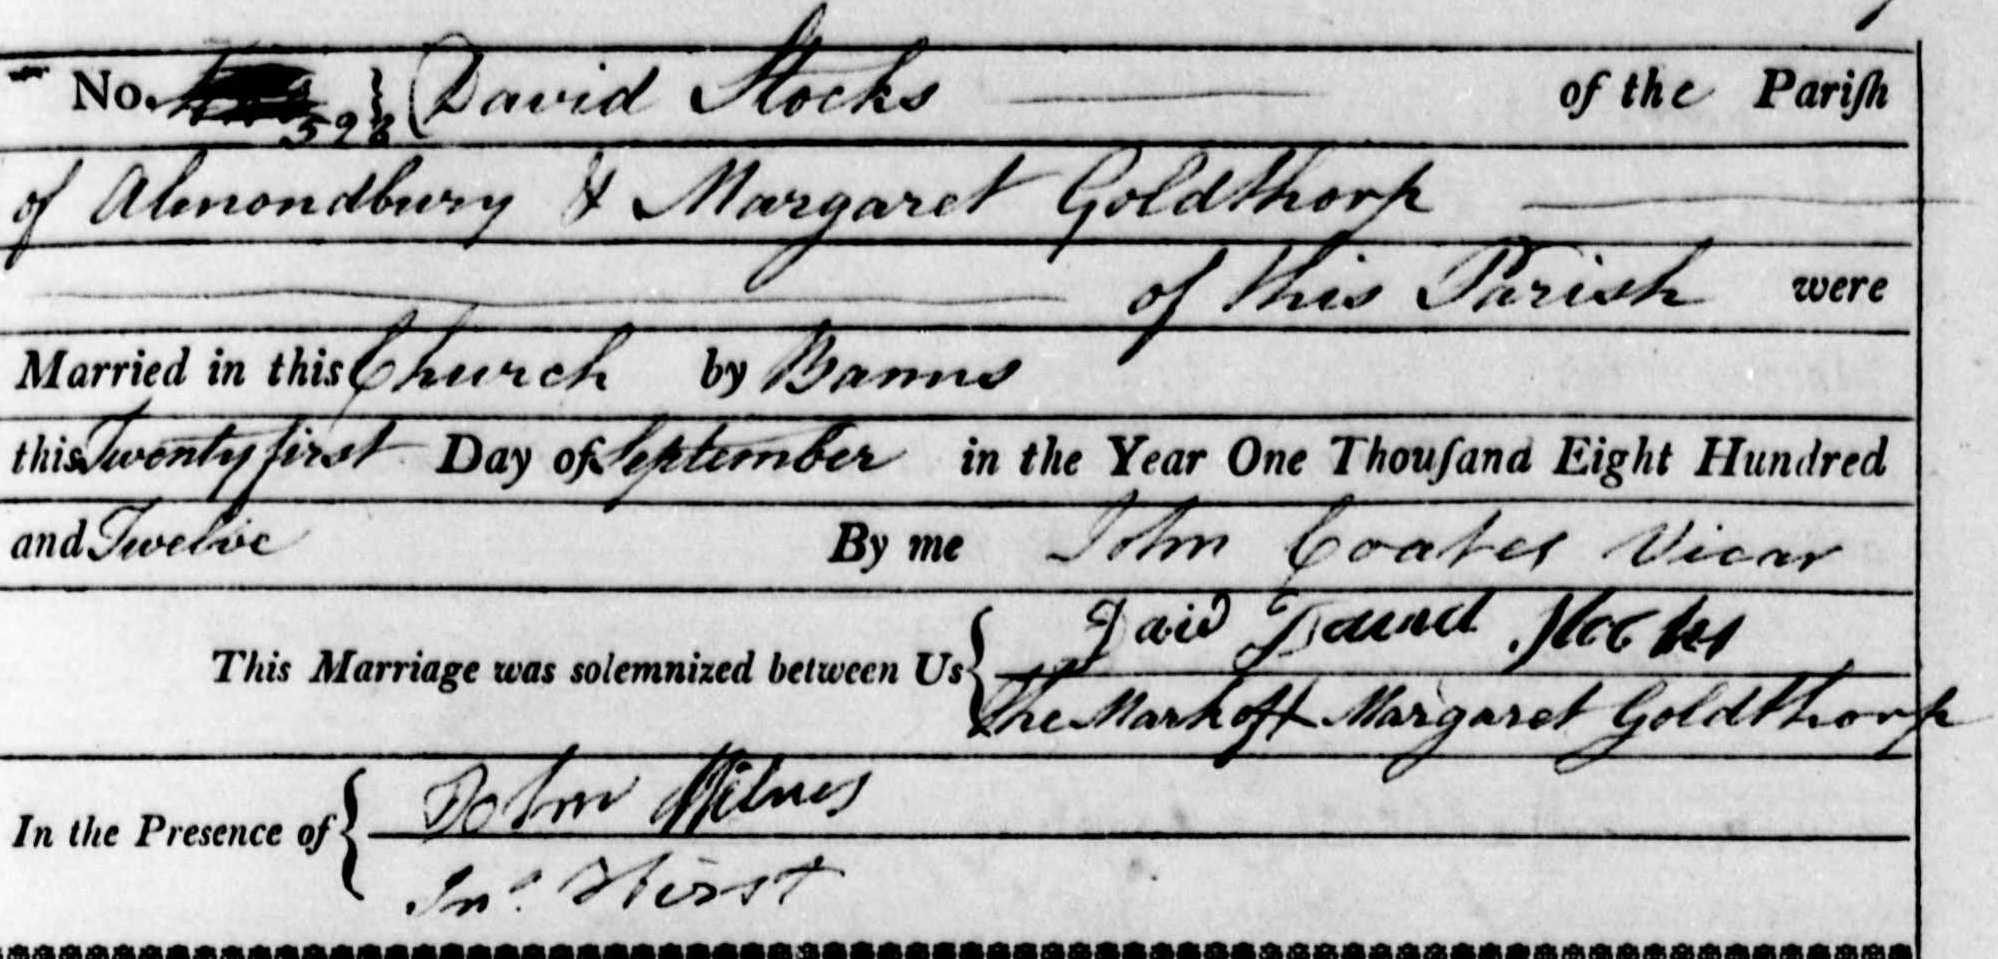 No. 598 } David Stocks of the Pariſh
of Almondbury & Margaret Goldthorp
of this Parish were
Married in this Church by Banns
this Twenty first Day of September in the Year One Thouſand Eight Hundred
and Twelve By me John Coates Vicar
This Marriage was solemnized between Us { Daid David Stocks
The Mark of X Margaret Goldthorp
In the Presence of { John Milnes
Jno. Hirst